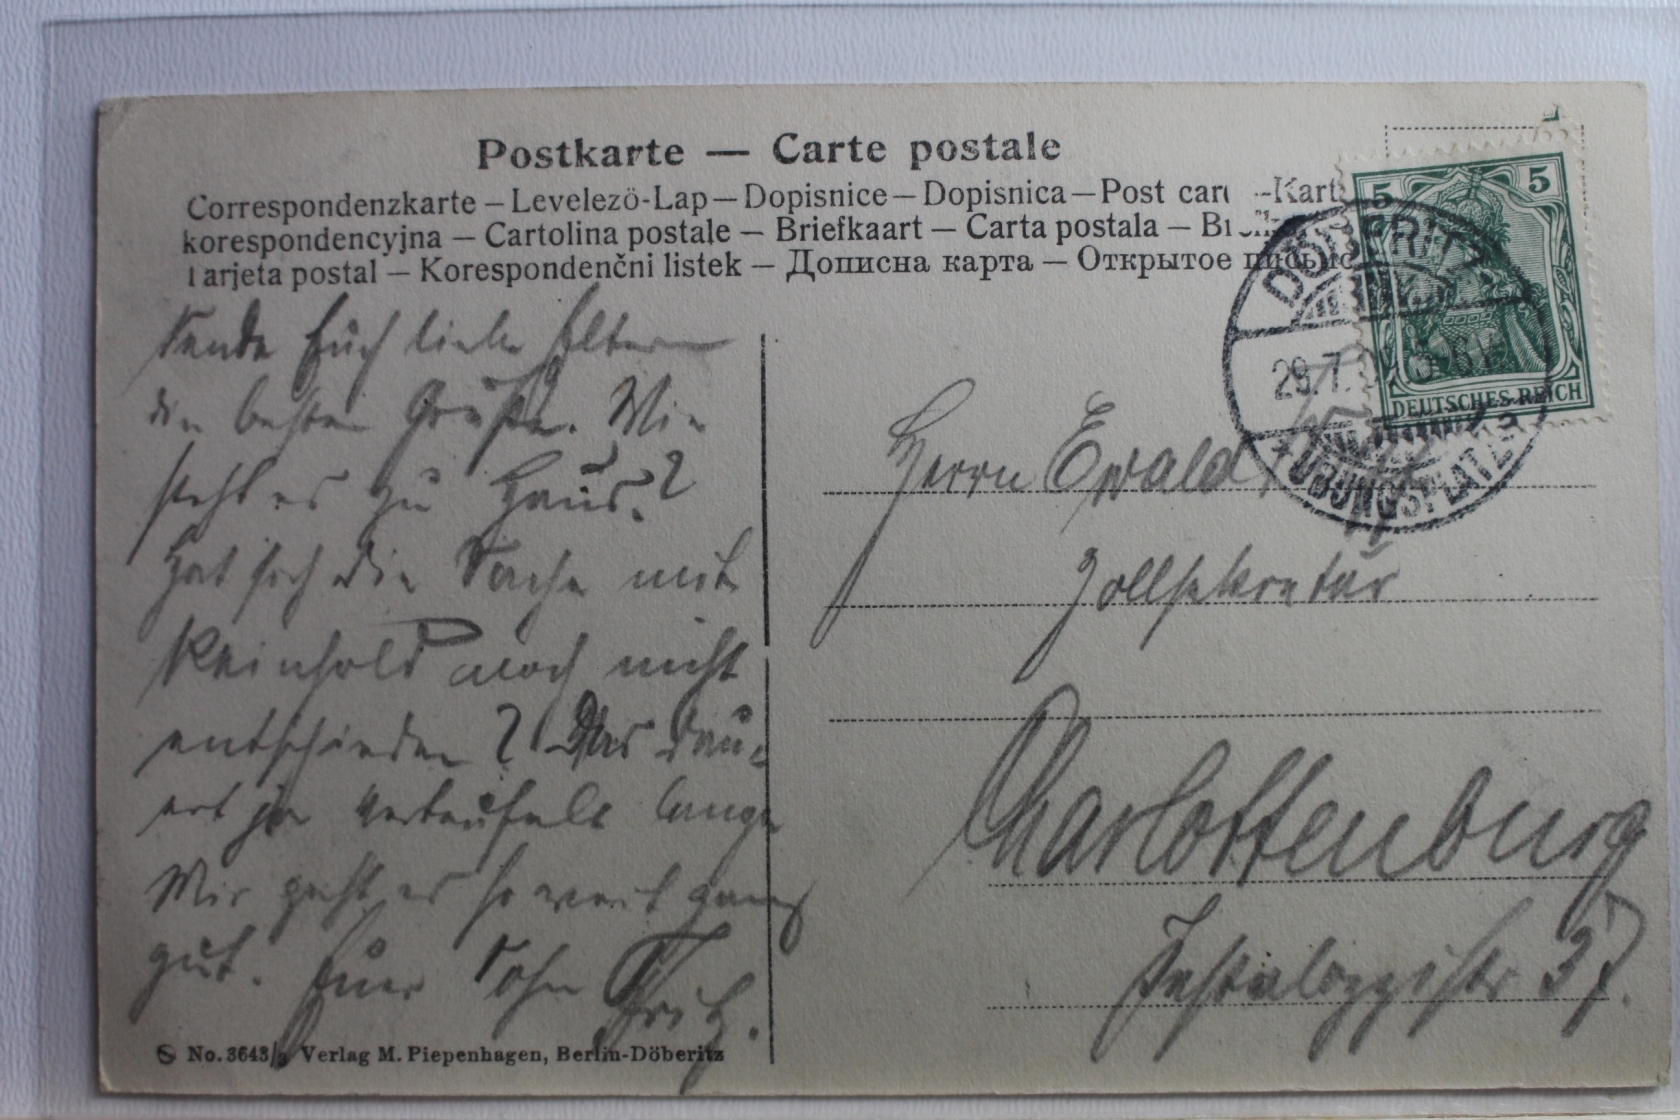 Postkarte — Carte postale
Correspondenzkarte – Levelezö-Lap – Dopisnice – Dopisnica – Post car -Kart
korespondencyjna – Cartolina postale – Briefkaart – Carta postala –
Tarjeta postal – Korespondenčni listek – Дописна карта – Открытое письмо
5 5
DEUTSCHES REICH
DÖBERITZ
29.7.
ÜBUNGSPLATZ
Sende Euch liebe Eltern
die besten Grüße. Wie
steht es zu Haus?
Hat sich die Sache mit
Reinhold noch nicht
entschieden? Das dau-
ert ja verteufelt lange
Mir geht es so weit ganz
gut. Euer Sohn Fritz.
Herrn Ewald
Zollsekretär
Charlottenburg
Pestalozzistr 37.
No. 3643/3 Verlag M. Piepenhagen, Berlin-Döberitz